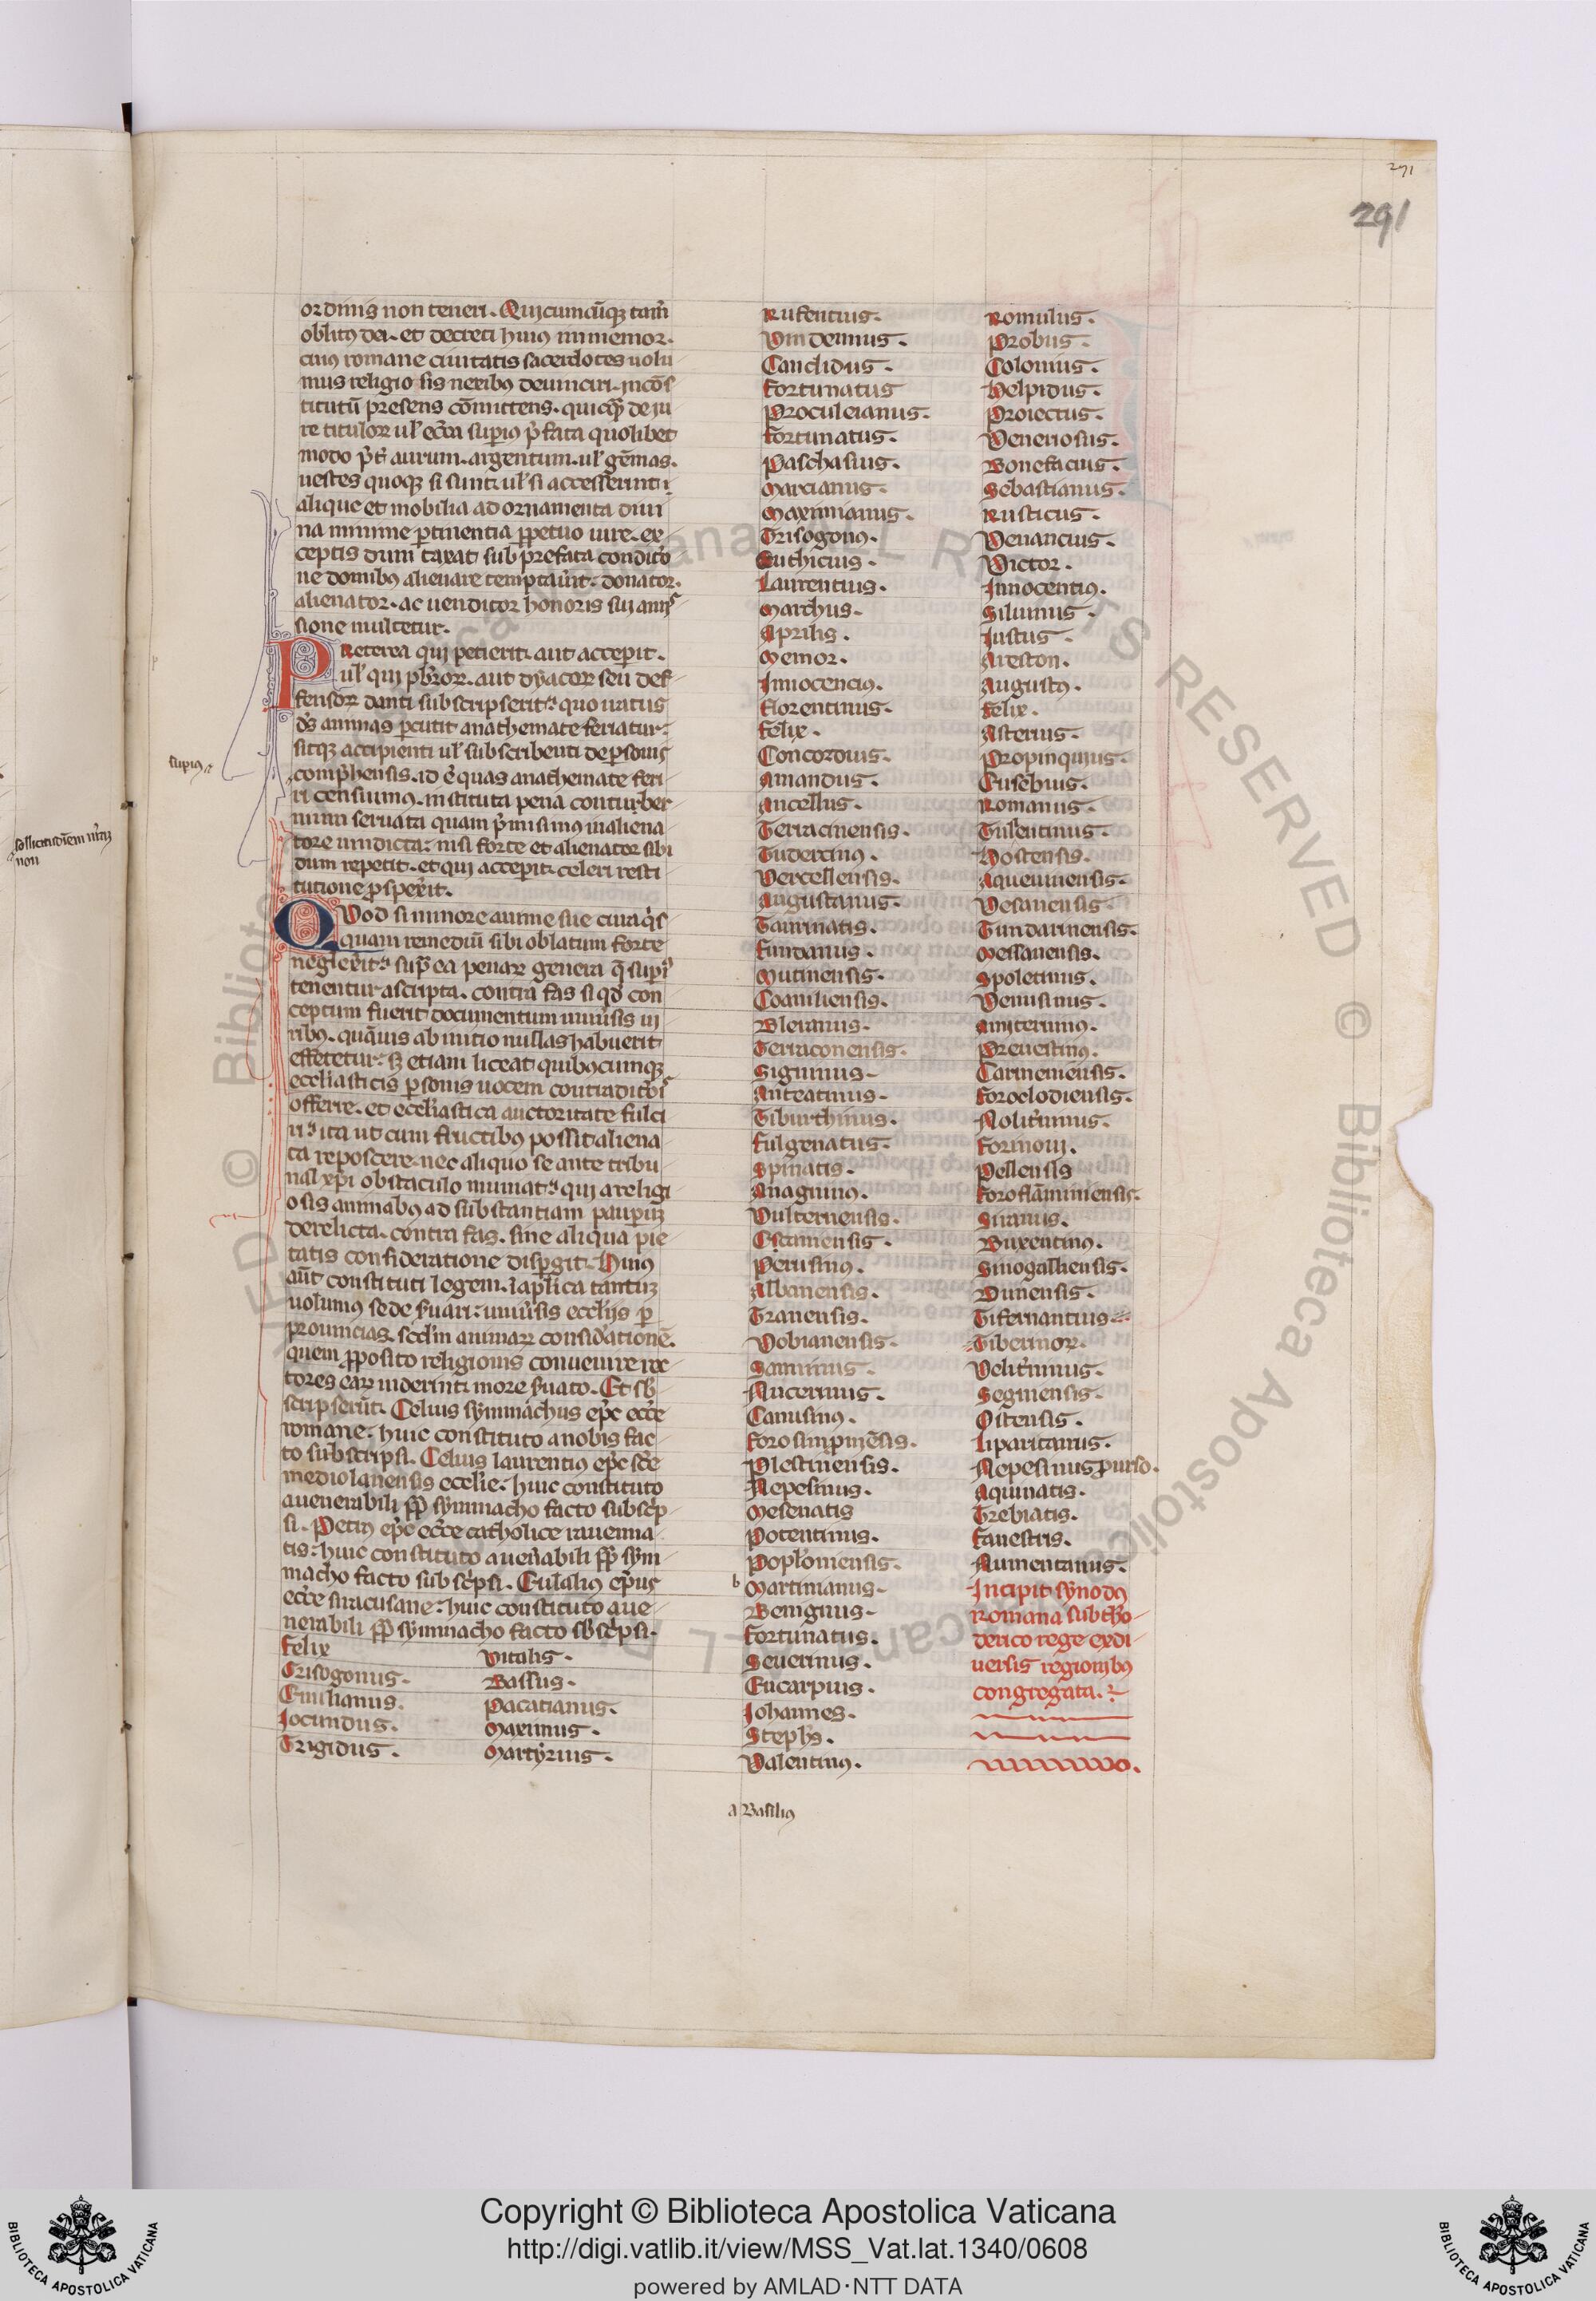 291
291
ordinis non teneri. Quicumcūqꝫ tam̄
oblitꝰ dei. et decreti huiꝰ immemor.
cuiꝰ romane ciuitatis sacerdotes uolu
mus religiosis nexibꝰ deuinciri. in cōs
titutū presens cōmittens. quicqͣꝫ de iu
re titulorꝝ ul' ecc̄ia supiꝰ p̄fata quolibet
modo p̄t̄ aurum. argentum. ul' gēmas.
uestes quoqꝫ si sunt. ul' si accesserint.
alique et mobilia ad ornamenta diui
na minime ꝑtinentia ꝑpetuo iure. ex
ceptis dum taxat sub prefata condic̄o
ne domibꝰ alienare temptauīt. donator.
alienator. ac uenditor honoris sui amis
sione multetur.
PReterea qui petierit. aut acceꝑit.
ul' qui pb̄rorꝝ. aut dyacorꝝ seu def
fensorꝝ danti subscripserit. quo iratus
dꝰs animas ꝑcutit anathemate feriatur.
sitqꝫ accipienti ul' subscribenti de ꝑsonis
supiꝰ
comp̄hensis. id ē quas anathemate feri
ri censuimꝰ. instituta pena conturber
nium seruata quam p̄misimꝰ in aliena
tore uindicta. nisi forte et alienator sibi
dum repetit. et qui acceꝑit. celeri resti
tutione ꝓspexit.
QVod si minore anime sue ciuaqͣs
quam remediū sibi oblatum forte
neglexīt. suꝑ ea penarꝝ genera q̄ supͥ
tenentur ascripta. contra fas si qͦd con
ceptum fuerit documentum uniūsis iu
ribꝰ. quāuis ab initio nullas habuerit
effetetur. sꝫ etiam liceat quibꝰcumqꝫ
eccl'iasticis ꝑsonis uocem contradictōis
offerre. et eccl'iastica auctoritate fulci
ri. ita ut cum fructibꝰ possit aliena
ta reposcere. nec aliquo se ante tribu
nal xp̄i obstaculo muniat. qui a religi
osis animabꝰ ad substantiam pauꝑuꝫ
derelicta. contra fas. sine aliqua pie
tatis consideratione disꝑgit. Huiꝰ
aūt constituti legem. i apl'ica tantuꝫ
uolumꝰ sede ẜuari. uniūsis eccl'ijs ꝑ
prouincias. scd'm animarꝝ considationē.
quem ꝓposito religionis conuenire rec
tores earꝝ uiderint. more ẜuato. Et sb̄
scripserūt. Celius symmachus ep̄c ecc̄e
romane. huic constituto a nobis fac
to subscripsi. Celius laurentiꝰ ep̄c sc̄e
mediolanensis eccl'ie. huic constituto
a uenerabili pp̄ symmacho facto subsc͛p
si. Petrꝰ ep̄c ecc̄e catholice rauenna
tis. huic constituto a ueīabili pp̄ sym
macho facto subsc͛psi. Eulaliꝰ ep̄us
ecc̄e siracusane. huic constituto a ue
nerabili pp̄ symmacho facto sb̄sc͛psi.
Felix
Crisogonus.
Emilianus.
Jocundus.
Trigidus.
Vitalis.
Bassus.
Pacatianus.
Maximus.
Martyrius.
Rufentius.
Vindemus.
Candidus.
Fortunatus
Proculeianus.
Fortunatus.
Paschasius.
Marcianus.
Maximianus.
Trisogonꝰ.
Euthicius.
Laurentius.
Marchus.
Aprilis.
Memor.
Innocenciꝰ.
Florentinus.
Felix.
Concordius.
Amandus.
Ancellus.
Terracinensis.
Tudertinꝰ.
Vercellensis.
Augustanus.
Taurinatis.
Fundanus.
Mutinensis.
Coaniliensis.
Bleranus.
Terraconensis.
Signinus.
Anteatinus.
Tiburthinus.
Fulgenatus.
Spinatis.
Anagninꝰ.
Vulternensis.
Estanensis.
Perusinꝰ.
Albanensis.
Tranensis.
Vobianensis.
Saminus.
Nucerinus.
Canusinꝰ.
Forosinpniēsis.
Plestinensis.
Nepesinus.
Mesenatis
Potentinus.
Popl'oniensis.
b Martinianus.
Benignus.
Fortunatus.
Seuerinus.
Eucarpius.
Johannes.
Steph's.
Valentinꝰ.
a Basiliꝰ
Romulus.
Probus.
Colonius.
Helpidus.
Proiectus.
Veneriosus.
Bonefacius.
Sebastianus.
Rusticus.
Venancius.
Victor.
Innocentiꝰ.
Siluinus.
Justus.
Areston.
Augustꝰ.
Felix.
Asterius.
Propinquus.
Eusebius.
Romanus.
Tusentinus.
Hostensis.
Aqueuiuensis.
Vesanensis.
Tundarinensis.
Messanensis.
Spoletinus.
Venusinus.
Amiterninꝰ.
Preuestinꝰ.
Carmeniensis.
Foroclodiensis.
Nolit͛minus.
Formoui.
Pellensis
Foroflāminiensis.
Siranus.
Buxentinꝰ.
Sinogalliensis.
Bunensis.
Tifernantius
Tiberinorꝝ.
Velit͛minus.
Segniensis.
Ostensis.
Liparitanus.
Nepesinus ꝓ urso.
Aquinatis.
Trebiatis.
Fanestris.
Numentanus.
Incipit synodꝰ
romana sub th̄o
derico rege ex di
uersis regionibꝰ
congregata.
sollicitudīem nr̄aꝫ
non
Copyright © Biblioteca Apostolica Vaticana
http://digi.vatlib.it/view/MSS_Vat.lat.1340/0608
powered by AMLAD·NTT DATA
BIBLIOTECA APOSTOLICA VATICANA
BIBLIOTECA APOSTOLICA VATICANA